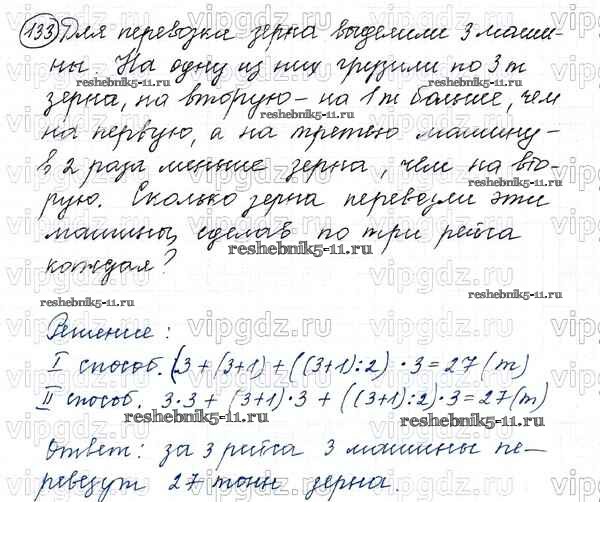 133 Для перевозки зерна выделили 3 маши-
ны. На одну из них грузили по 3 т
зерна, на вторую – на 1 т больше, чем
на первую, а на третью машину –
в 2 раза меньше зерна, чем на вто-
рую. Сколько зерна перевезли эти
машины, сделав по три рейса
каждая?
Решение:
I способ. (3+(3+1)+((3+1):2)·3=27(т)
II способ. 3·3+(3+1)·3+((3+1):2)·3=27(т)
Ответ: за 3 рейса 3 машины пе-
ревезут 27 тонн зерна.
vipgdz.ru
reshebnik5-11.ru